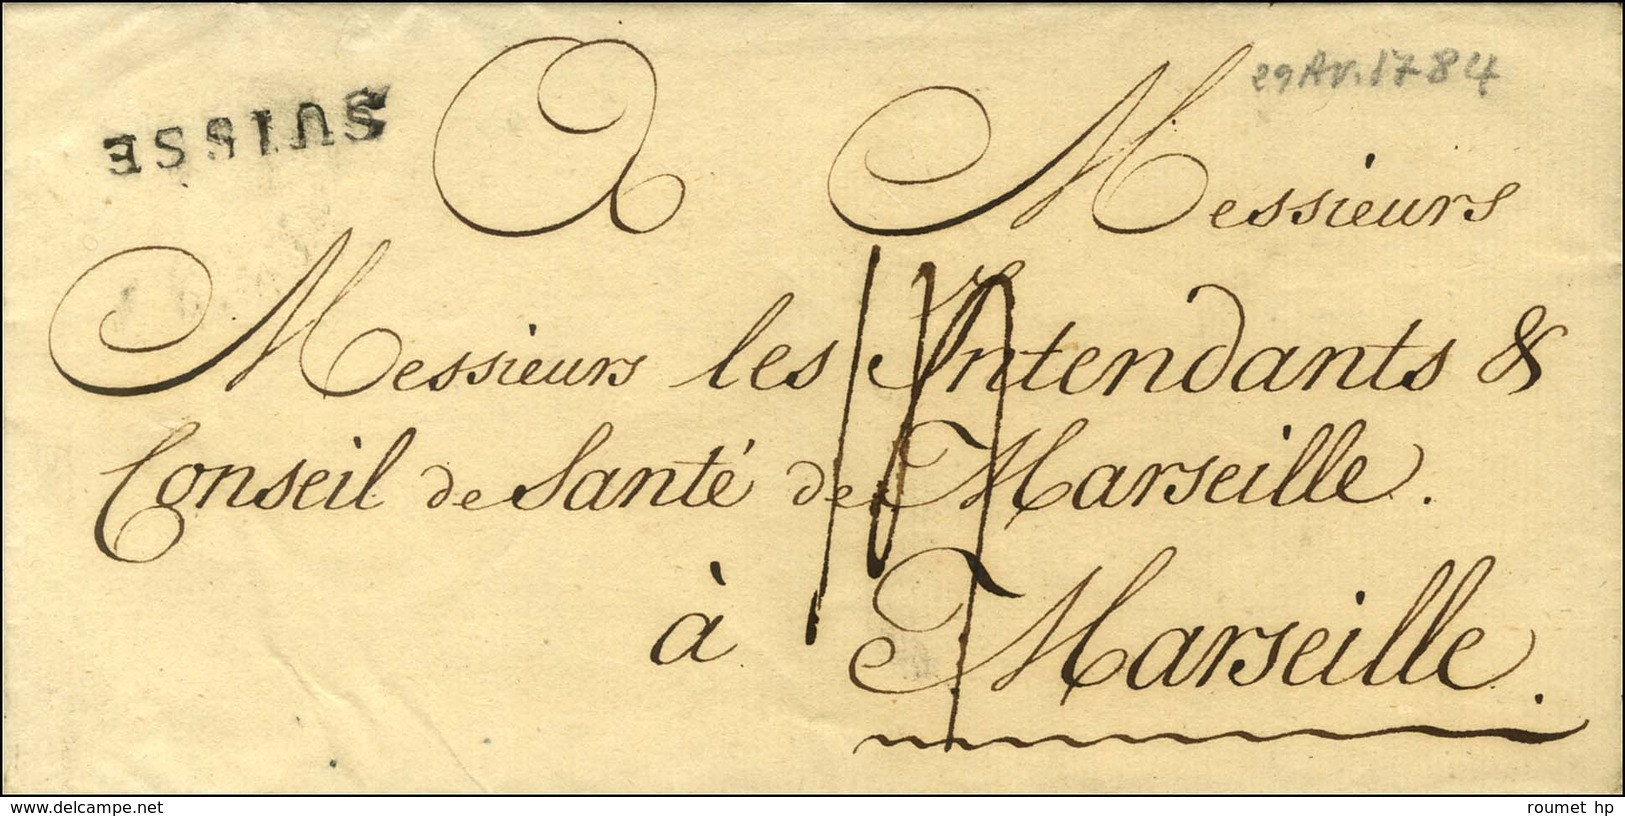 29 Av. 1784
SUISSE
A Messieurs
Messieurs les Intendants &
Conseil de Santé de Marseille.
à Marseille.
www.delcampe.net
roumet hp